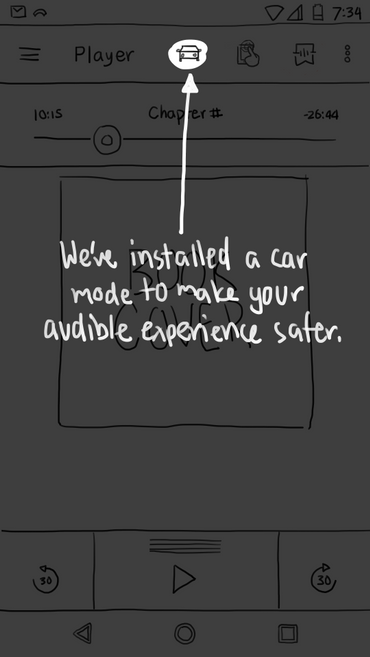 7:34
Player
10:15 Chapter # -26:44
We've installed a car
mode to make your
audible experience safer.
BOOK
COVER
30 30